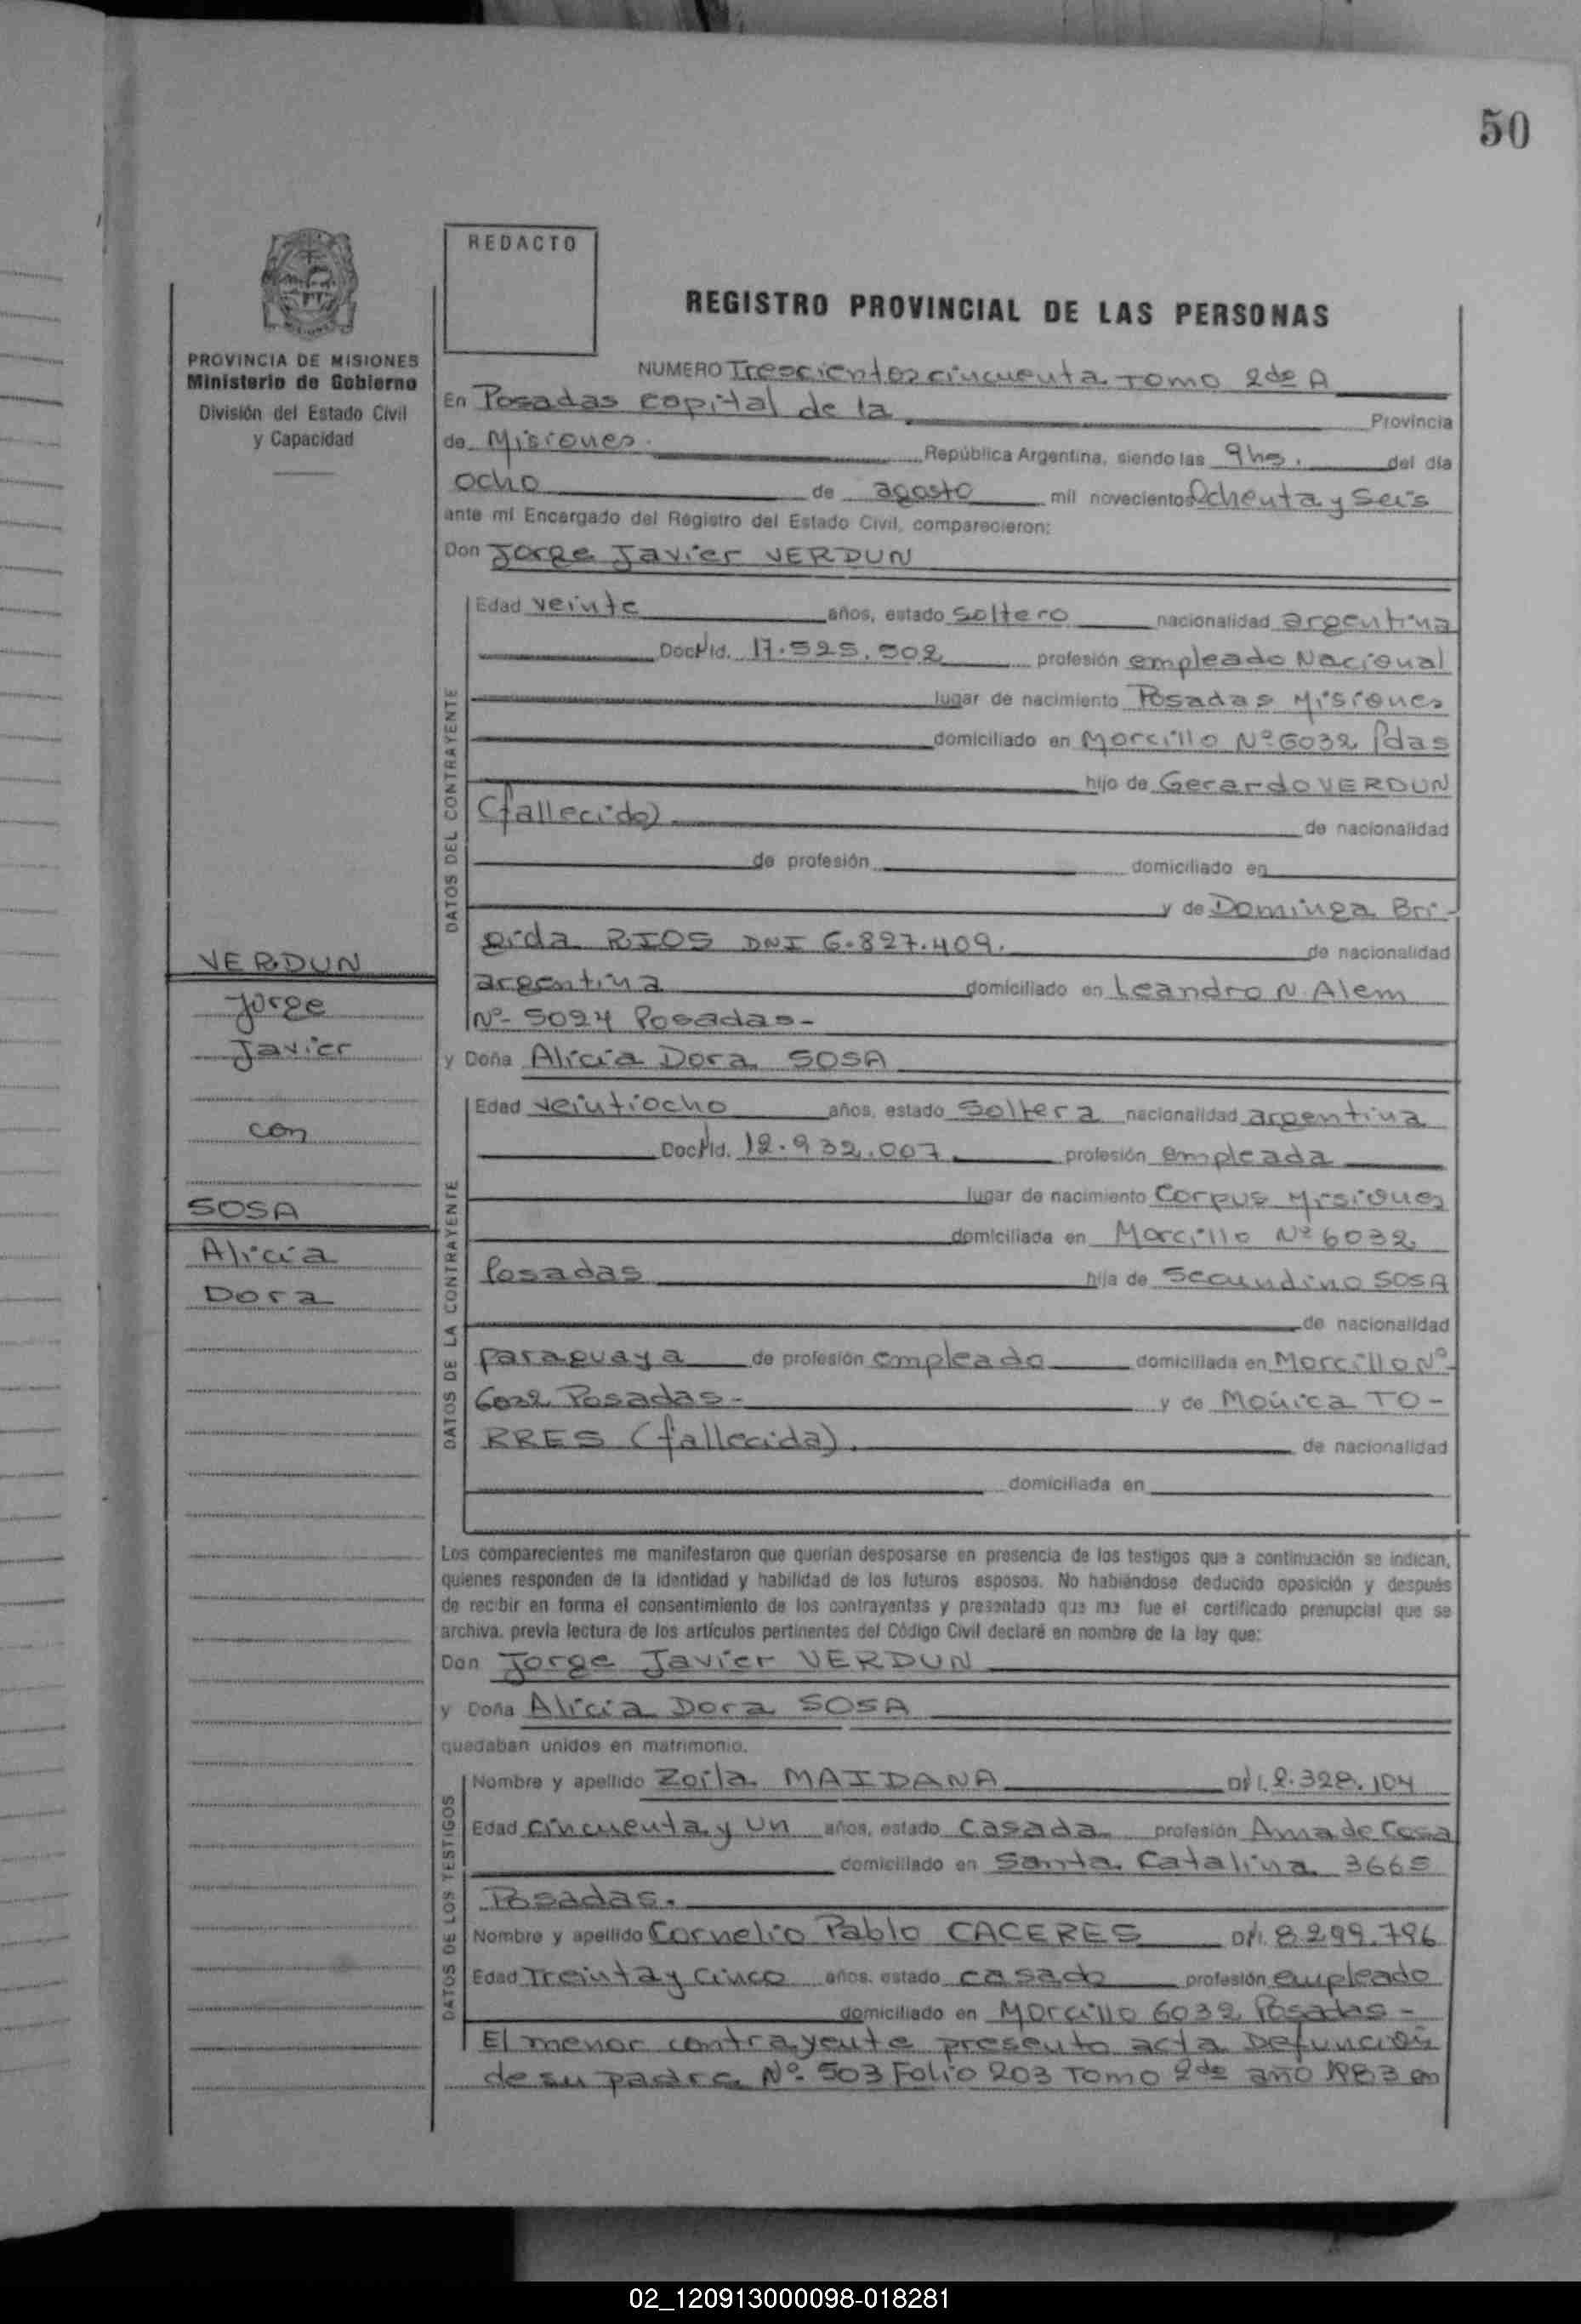 50
REDACTO
REGISTRO PROVINCIAL DE LAS PERSONAS
PROVINCIA DE MISIONES
Ministerio de Gobierno
División del Estado Civil
y Capacidad
NUMERO Trescientos cincuenta Tomo 2do A
En Posadas capital de la Provincia
de Misiones. República Argentina, siendo las 9hs. del día
ocho de agosto mil novecientos Ochenta y Seis
ante mí Encargado del Registro del Estado Civil, comparecieron:
Don Jorge Javier VERDUN
DATOS DEL CONTRAYENTE
Edad veinte años, estado soltero nacionalidad argentina
Doc. Id. 17.525.502 profesión empleado Nacional
lugar de nacimiento Posadas Misiones
domiciliado en Morcillo Nº 6032 Pdas
hijo de Gerardo VERDUN
(fallecido). de nacionalidad
de profesión domiciliado en
y de Dominga Bri-
gida RIOS DNI 6.827.409. de nacionalidad
argentina domiciliado en Leandro N. Alem
Nº 5024 Posadas-
y Doña Alicia Dora SOSA
DATOS DE LA CONTRAYENTE
Edad veintiocho años, estado Soltera nacionalidad argentina
Doc. Id. 12.932.007. profesión empleada
lugar de nacimiento Corpus Misiones
domiciliada en Morcillo Nº 6032
Posadas hija de Secundino SOSA
de nacionalidad
paraguaya de profesión empleado domiciliada en Morcillo Nº
6032 Posadas- y de Mónica TO-
RRES (fallecida). de nacionalidad
domiciliada en
VERDUN
Jorge
Javier
con
SOSA
Alicia
Dora
Los comparecientes me manifestaron que querían desposarse en presencia de los testigos que a continuación se indican,
quienes responden de la identidad y habilidad de los futuros esposos. No habiéndose deducido oposición y después
de recibir en forma el consentimiento de los contrayentes y presentado que me fue el certificado prenupcial que se
archiva, previa lectura de los artículos pertinentes del Código Civil declaré en nombre de la ley que:
Don Jorge Javier VERDUN
y Doña Alicia Dora SOSA
quedaban unidos en matrimonio.
DATOS DE LOS TESTIGOS
Nombre y apellido Zoila MAIDANA 2.328.104
Edad cincuenta y un años, estado casada profesión Ama de Casa
domiciliado en Santa Catalina 3665
Posadas.
Nombre y apellido Cornelio Pablo CACERES 8.299.796
Edad Treinta y cinco años, estado casado profesión empleado
domiciliado en Morcillo 6032 Posadas-
El menor contrayente presento acta Defunción
de su padre Nº 503 Folio 203 Tomo 2do año 1983 en
02_120913000098-018281